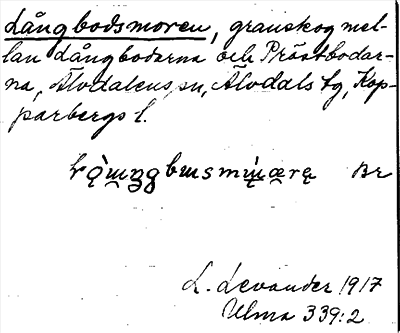 Långbodsmoren, granskog mel-
lan Långbodarna och Pråstbodar-
na, Älvdalens sn, Älvdals tg, Kop-
parbergs l.
Br
L. Levander 1917
Ulma 339:2